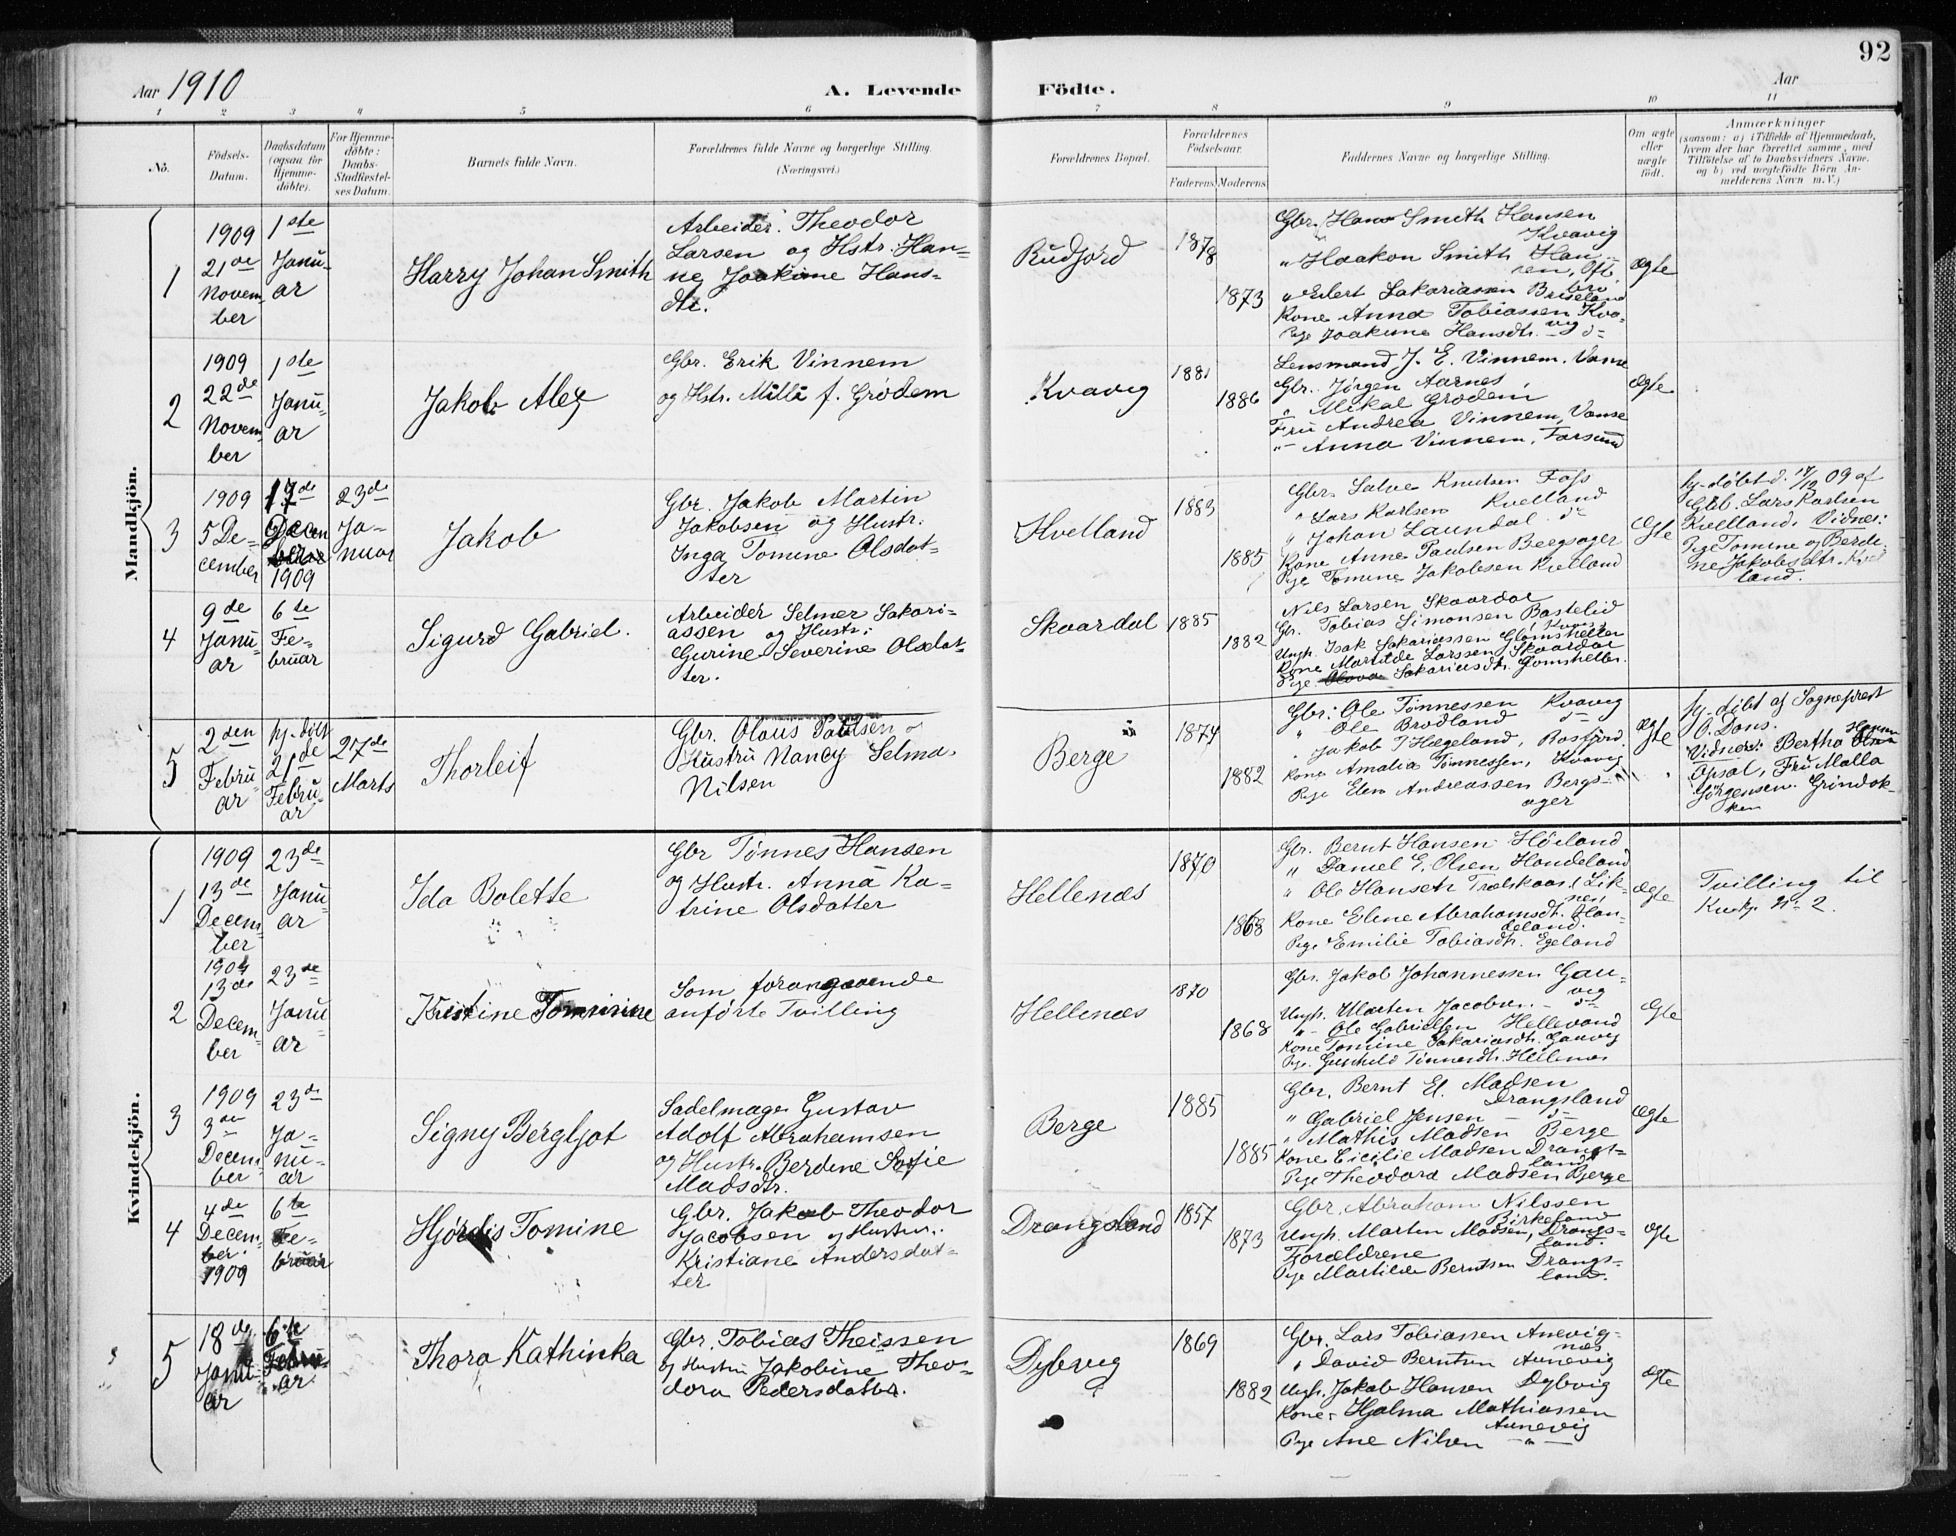 92
Aar 1910
A. Levende Födte.
Aar
1 2 3 4 5 6 7 8 9 10 11
No.
Födsels-
Datum.
Daabsdatum
(ogsaa for
Hjemme-
döbte).
For Hjemme-
döbte:
Daabs-
Stadfæstel-
ses Datum.
Barnets fulde Navn.
Forældrenes fulde Navne og borgerlige Stilling.
(Næringsvei.)
Forældrenes Bopæl.
Forældrenes
Födselsaar.
Faderens
Moderens
Faddernes Navne og borgerlige Stilling.
Om ægte
eller
uægte
födt.
Anmærkninger
(saasom: a) i Tilfælde af Hjemmedaab,
hvem der har forrettet samme, med
Tilföielse af to Daabsvidners Navne,
og b) ved uægtefödte Börn An-
melderens Navn m. V.)
Mandkjön.
1
1909
21de
Novem-
ber
1ste
Janu-
ar
Harry Johan Smith
Arbeider Theodor
Larsen og Hstr. Han-
ne Joakime Hans-
dtr.
Rudjord
1878
1873
Gbr. Hans Smith Hansen
Kvavig
" Haakon Smith Han-
sen, Ofte
bro
" Eilert Sakariassen Briseland
Kone Anna Tobiassen Kva-
vig
Pige Joakime Hansdtr. d-
Ægte
2
1909
22de
Novem-
ber
1ste
Janu-
ar
Jakob Alex
Gbr. Erik Vinnem
og Hstr. Milli f. Grödem
Kvavig
1881
1886
Lensmand J. E. Vinnem, Vanse
Gbr. Jörgen Aarnes,
" Mikal Grödem,
Fru Andrea Vinnem, Vanse
" - Anna Vinnem, Farsund
Ægte
3
1909
5 De-
cember
17de
Decem
ber
1909
23de
Ja-
nuar
Jakob
Gbr. Jakob Martin
Jakobsen og Hustr.
Inga Tomine Olsdat-
ter
Kvelland
1883
1885
Gbr. Salve Knudsen Foss
" Lars Karlsen Kvelland
" Johan Laundal d-
Kone Anne Paulsen Bergsager
Pige Tomine Jakobsen Kvelland
Ægte
hj-döbt d. 17/12 09 af
Gbr. Lars Karlsen
Kvelland. Vidner:
Pige Tomine og Berdi-
ne Jakobsdtr. Kvel
land.
4
9de
Janu-
ar
6te
Fe-
bruar
Sigurd Gabriel.
Arbeider Selmer Sakari-
assen og Hustr:
Gurine Severine Olsdat-
ter.
Skaardal
1885
1882
Nils Larsen Skaardal
Gbr. Tobias Simonsen Bastelid
Ungk. Isak Sakariassen Glomsheller
Kone Martilde Larssen Skaardal
Pige Sakariasdtr. Glomsheller.
5
2den
Febru-
ar
hj-döbt
21de
Febru-
ar
27de
Marts
Thorleif
Gbr. Olaus Paulsen
Hustru Nancy Selma
Nilsen
Berge
1874
1882
Gbr: Ole Tönnessen Kvavig
" Ole Brödland d-
" Jakob T Hægeland, Rostjörd
Kone Amalia Tönnessen, Kvavig
Pige Elen Andreassen Bergs-
ager
Ægte
hj-döbt af Sogneprest
O. Dons.
Vidner: Bertha Hansen
Opsal, Fru Malla
Jörgensen. Grindok-
ken
Kvindekjön.
1
1909
13de
Decem-
ber
23de
Janu-
ar
Ida Bolette
Gbr Tönnes Hansen
og Hustr. Anna Ka-
trine Olsdatter
Hellenæs
1870
1868
Gbr. Bernt Hansen Höiland
" Daniel E. Olsen, Haudeland
" Ole Hansen Trælskaar, Lik-
nes,
Kone Elene Abrahamsdtr. Hau-
deland.
Pige Emilie Tobiasdtr. Egeland
Ægte
Tvilling til
Kvkj. No 2.
2
1909
13de
Decem-
ber
23de
Janu
ar
Kristine Tomirine
Som forangaaende
anförte Tvilling
Hellenæs
1870
1868
Gbr. Jakob Johannessen Gau-
vig
Ungk. Marten Jacobsen - d-
" - Ole Gabrielsen Hellevand
Kone Tomine Sakariasdtr. Gauvig
Pige. Gunhild Tönnesdtr. Hellenæs
Ægte
3
1909
3die
Decem-
ber
23de
Ja-
nu-
ar
Signy Bergljot
Sadelmager Gustav
Adolf Abrahamsen
og Hustr. Berdine Sofie
Madsdtr.
Berge
1885
1885
Gbr. Bernt El. Madsen
Drangsland
" Gabriel Jensen - d-
" Mathis Madsen Berge
Kone Cicilie Madsen Drangs-
land
Pige Theodora Madsen Berge
Ægte
4
4de
Decem-
ber.
1909
6te
Fe-
bruar
Hjördis Tomine
Gbr. Jakob Theodor
Jacobsen og Hustru:
Kristiane Andersdat-
ter
Drangsland
1857
1873
Gbr. Abraham Nilssen
Birkeland
Ungk. Marten Madsen, Drangs-
land.
Forældrene
Pige Martilde Berntsen Drangs-
land.
Ægte
5
18de
Janu-
ar
6te
Febru-
ar
Thora Kathinka
Gbr. Tobias Theissen
og Hustru Jakobine Theo-
dora Pedersdatter.
Dybvig
1869
1882
Gbr. Lars Tobiassen Anevig-
næs
" David Berntsen Aunevig
Ungk. Jakob Hansen Dybvig
Kone Hjalma Mathiassen
Aunevig
Pige Ane Nilsen - " -
Ægte